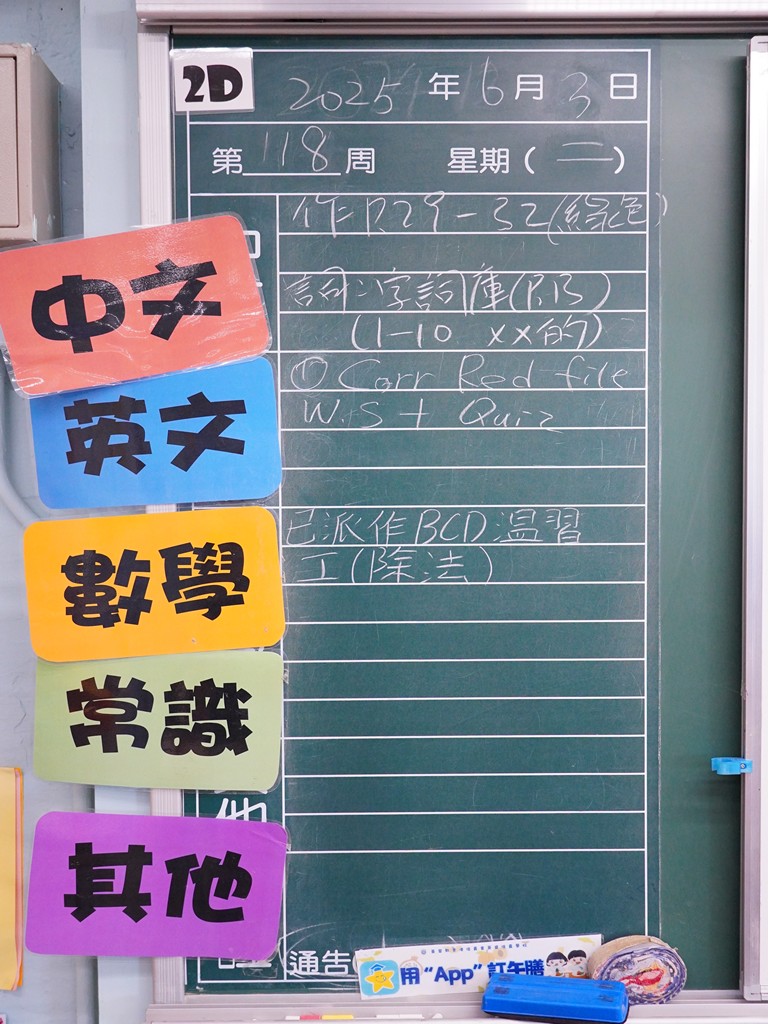 2D
2025 年 6 月 3 日
第 118 周 星期 ( 二 )
中文
作 P.29-32 (綠色)
詞:字詞庫(P.13)
(1-10 xx的)
英文
① Corr Red file
W.S + Quiz
數學
已派作BCD 溫習
工(除法)
常識
其他
他
通告
用 “App” 訂午膳